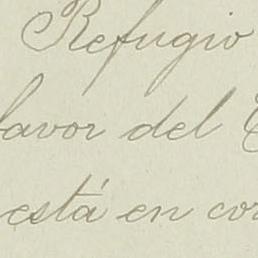 Refugio
favor del
está en cor